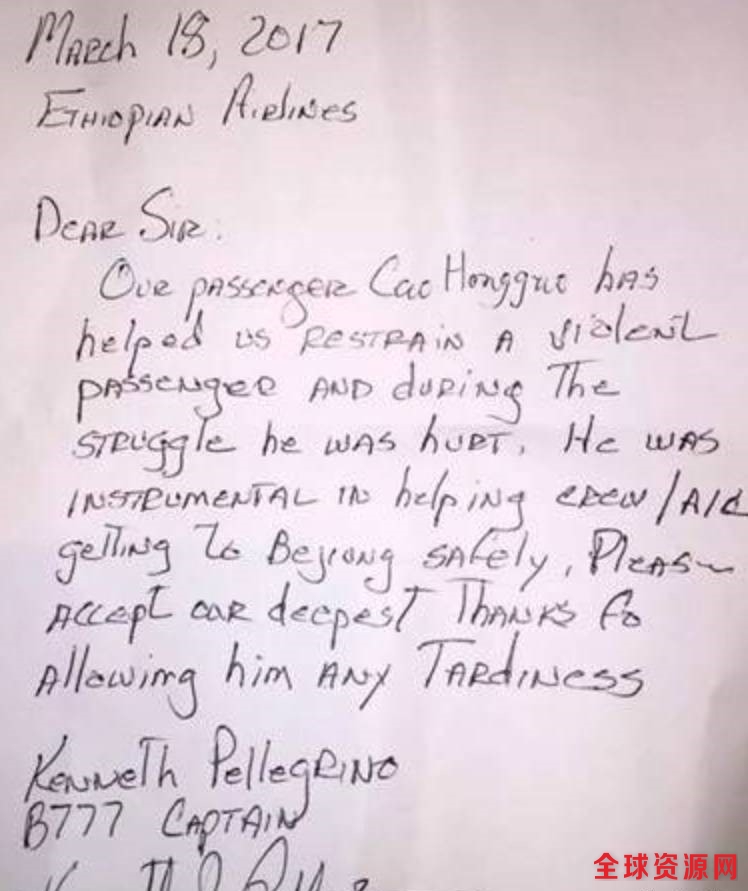 March 18, 2017
Ethiopian Airlines
Dear Sir:
Our passenger Cao Hongguo has
helped us restrain a violent
passenger and during the
struggle he was hurt. He was
instrumental in helping crew/A/C
getting to Bejiong safely, Please
accept our deepest thanks fo
allowing him any tardiness
Kenneth Pellegrino
B777 Captain
全球资源网